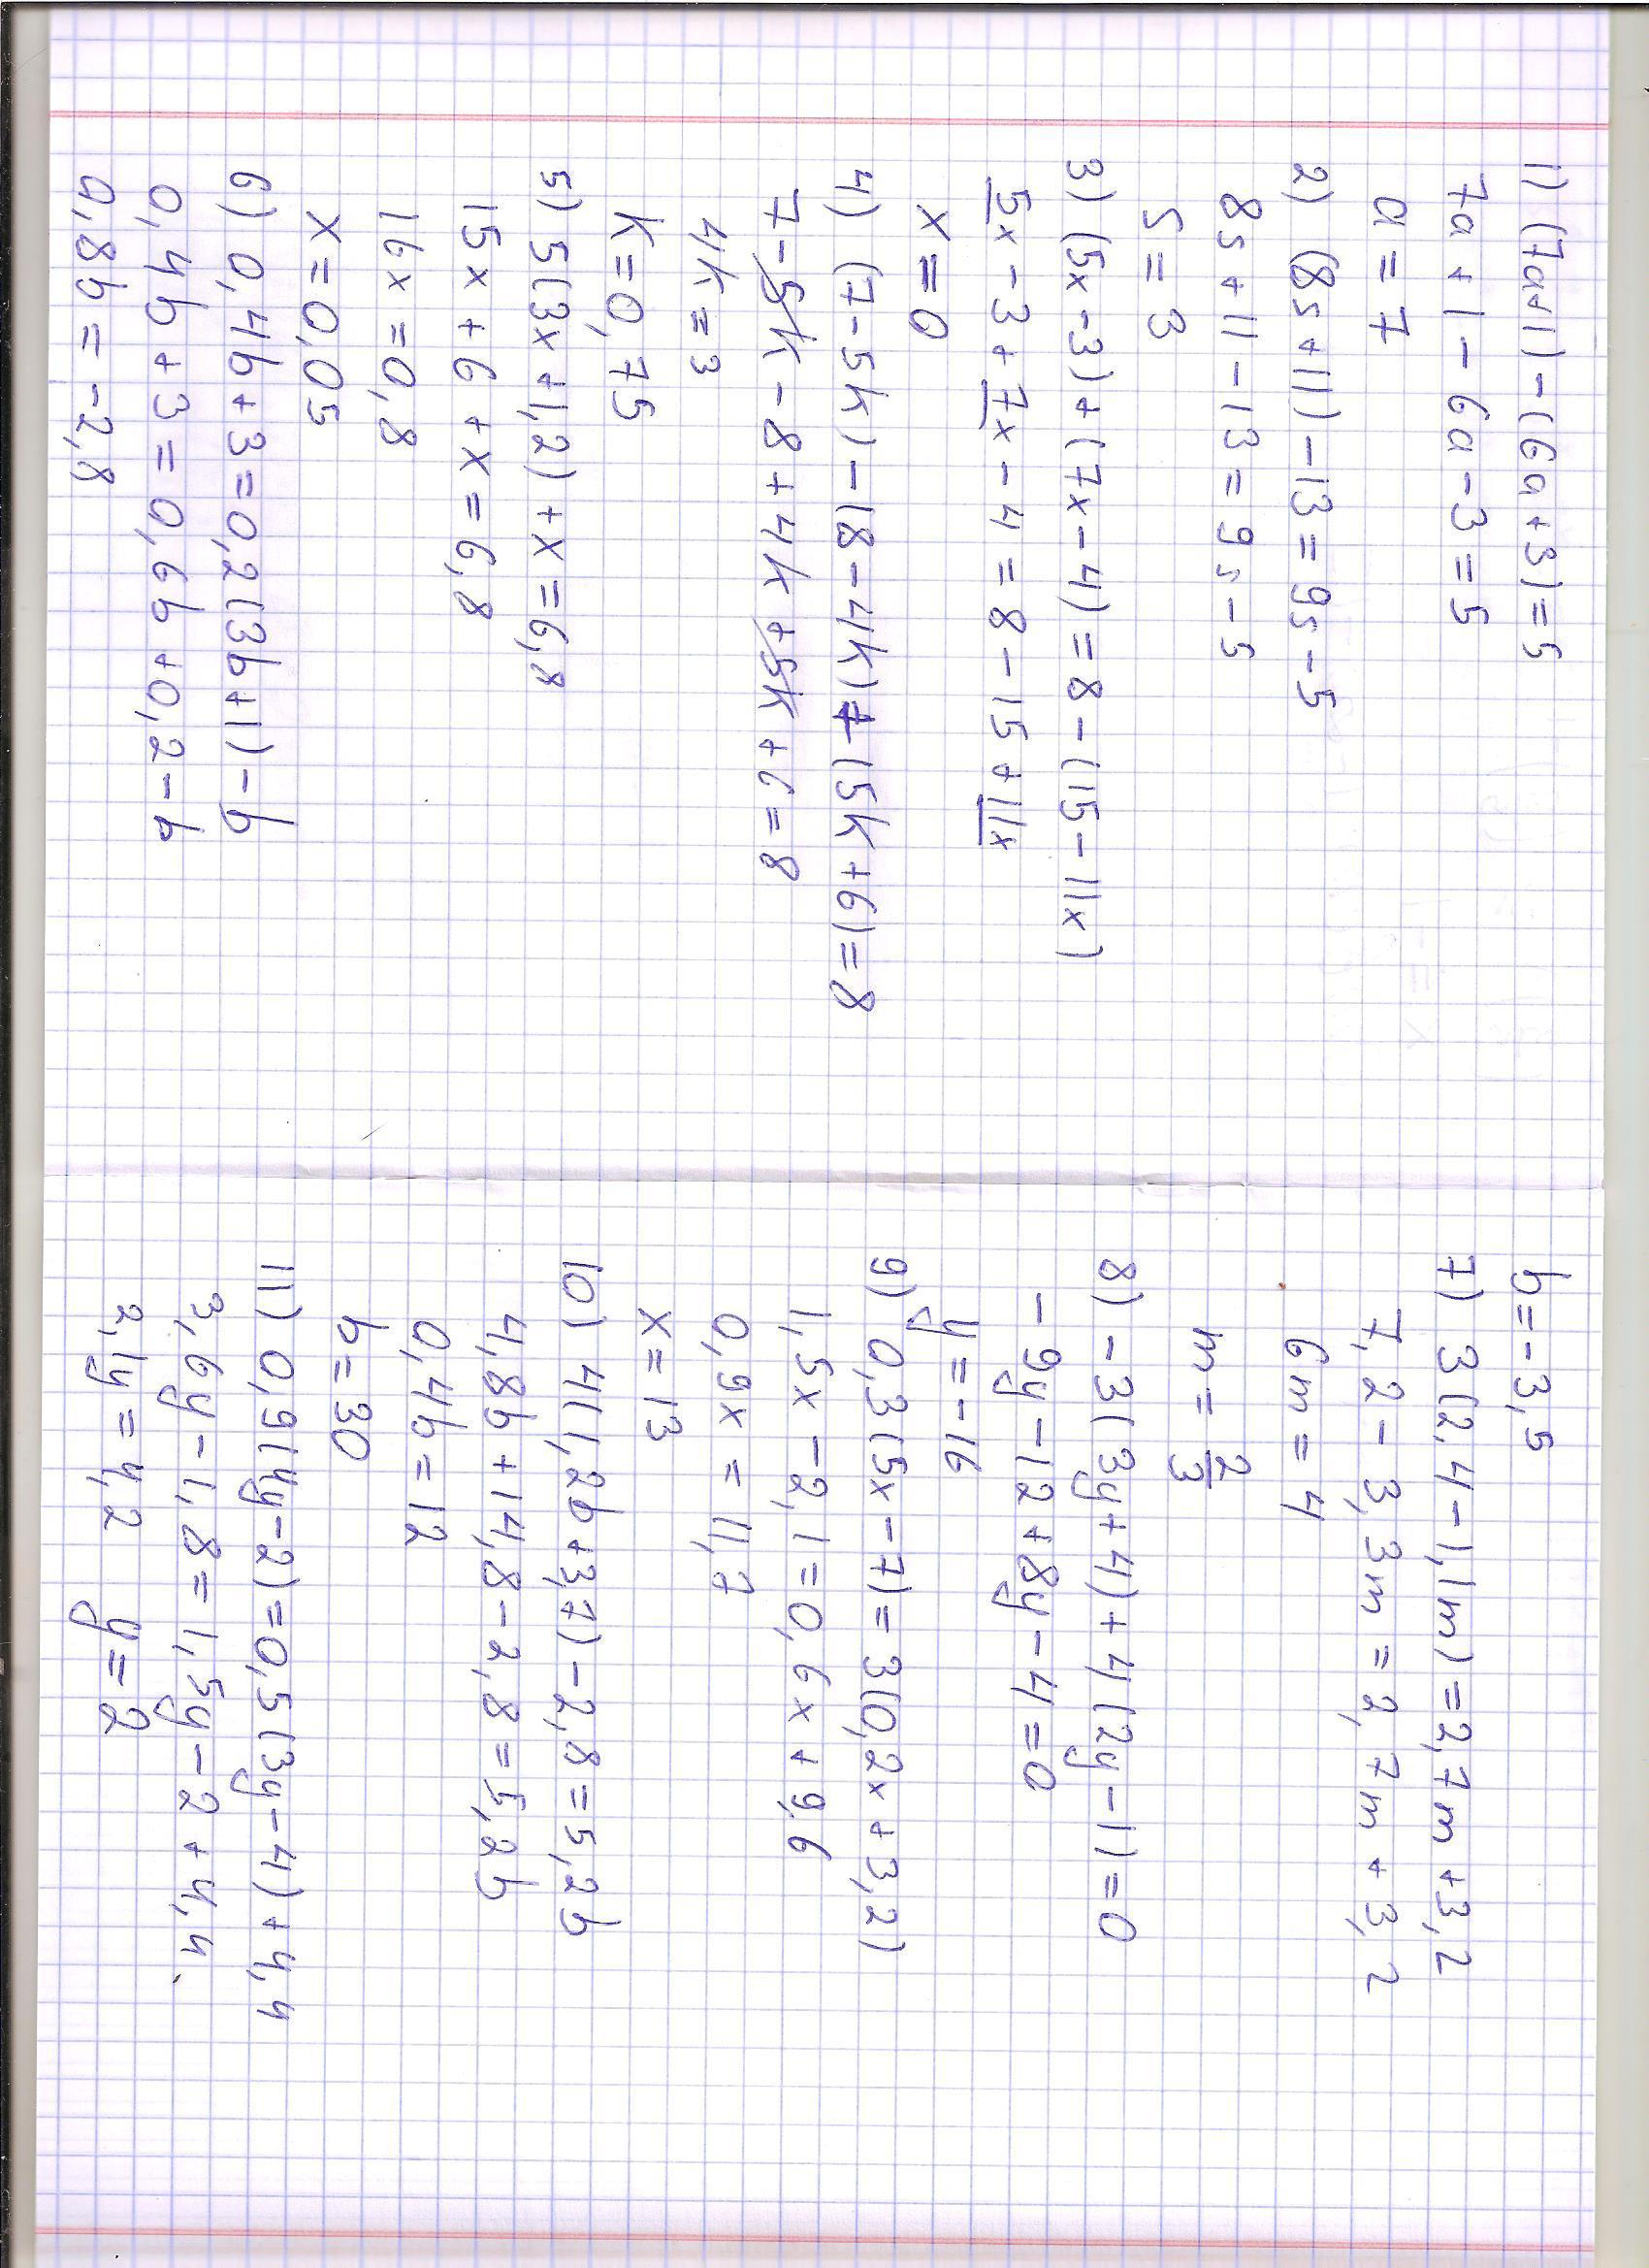 1) (7a+1)-(6a+3)=5
7a+1-6a-3=5
a=7
2) (8s+11)-13=9s-5
8s+11-13=9s-5
s=3
3) (5x-3)+(7x-4)=8-(15-11x)
5x-3+7x-4=8-15+11x
x=0
4) (7-5k)-(8-4k)+(5k+6)=8
7-5k-8+4k+5k+6=8
4k=3
k=0,75
5) 5(3x+1,2)+x=6,8
15x+6+x=6,8
16x=0,8
x=0,05
6) 0,4b+3=0,2(3b+1)-b
0,4b+3=0,6b+0,2-b
0,8b=-2,8
b=-3,5
7) 3(2,4-1,1m)=2,7m+3,2
7,2-3,3m=2,7m+3,2
6m=4
m=2/3
8) -3(3y+4)+4(2y-1)=0
-9y-12+8y-4=0
y=-16
9) 0,3(5x-7)=3(0,2x+3,2)
1,5x-2,1=0,6x+9,6
0,9x=11,7
x=13
10) 4(1,2b+3,7)-2,8=5,2b
4,8b+14,8-2,8=5,2b
0,4b=12
b=30
11) 0,9(4y-2)=0,5(3y-4)+4,4
3,6y-1,8=1,5y-2+4,4
2,1y=4,2 y=2